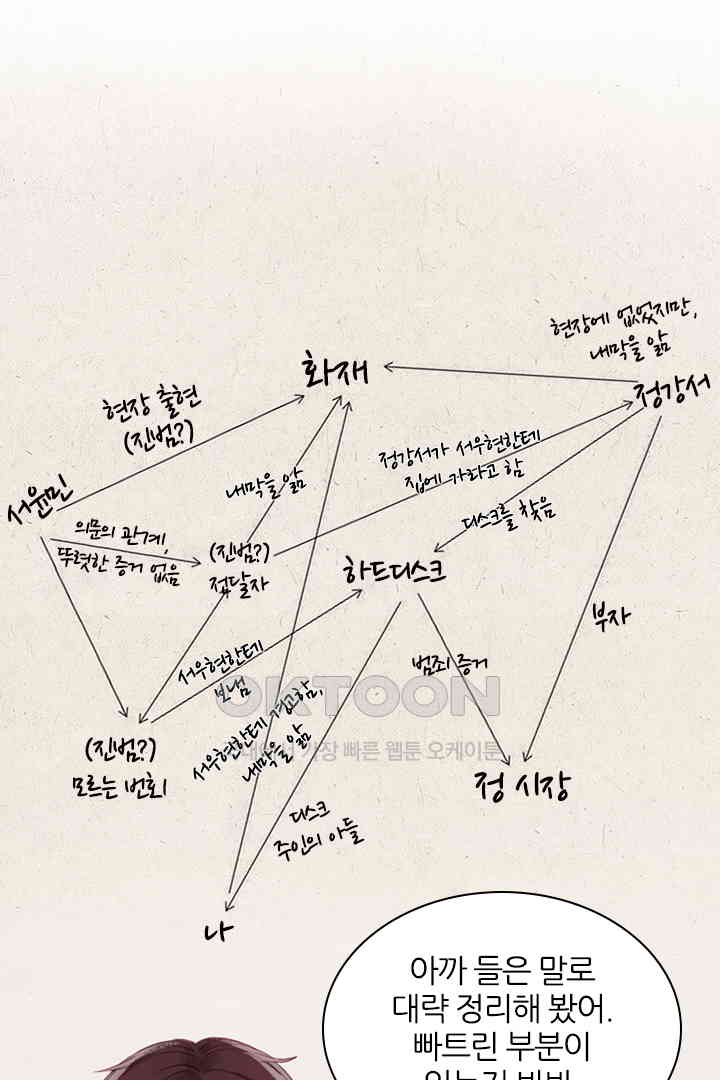 현장에 없었지만,
내막을 앎
화재
정강서
현장 출현
(진범?)
정강서가 서우현한테
집에 가라고 함
내막을 앎
서윤민
디스크를 찾음
의문의 관계,
뚜렷한 증거 없음
(진범?)
전달자
하드디스크
부자
서우현한테
보냄
범죄 증거
OKTOON
가장 빠른 웹툰 오케이툰
서우현한테 경고함,
내막을 앎
(진범?)
모르는 번호1
정 시장
디스크
주인의 아들
나
아까 들은 말로
대략 정리해 봤어.
빠트린 부분이